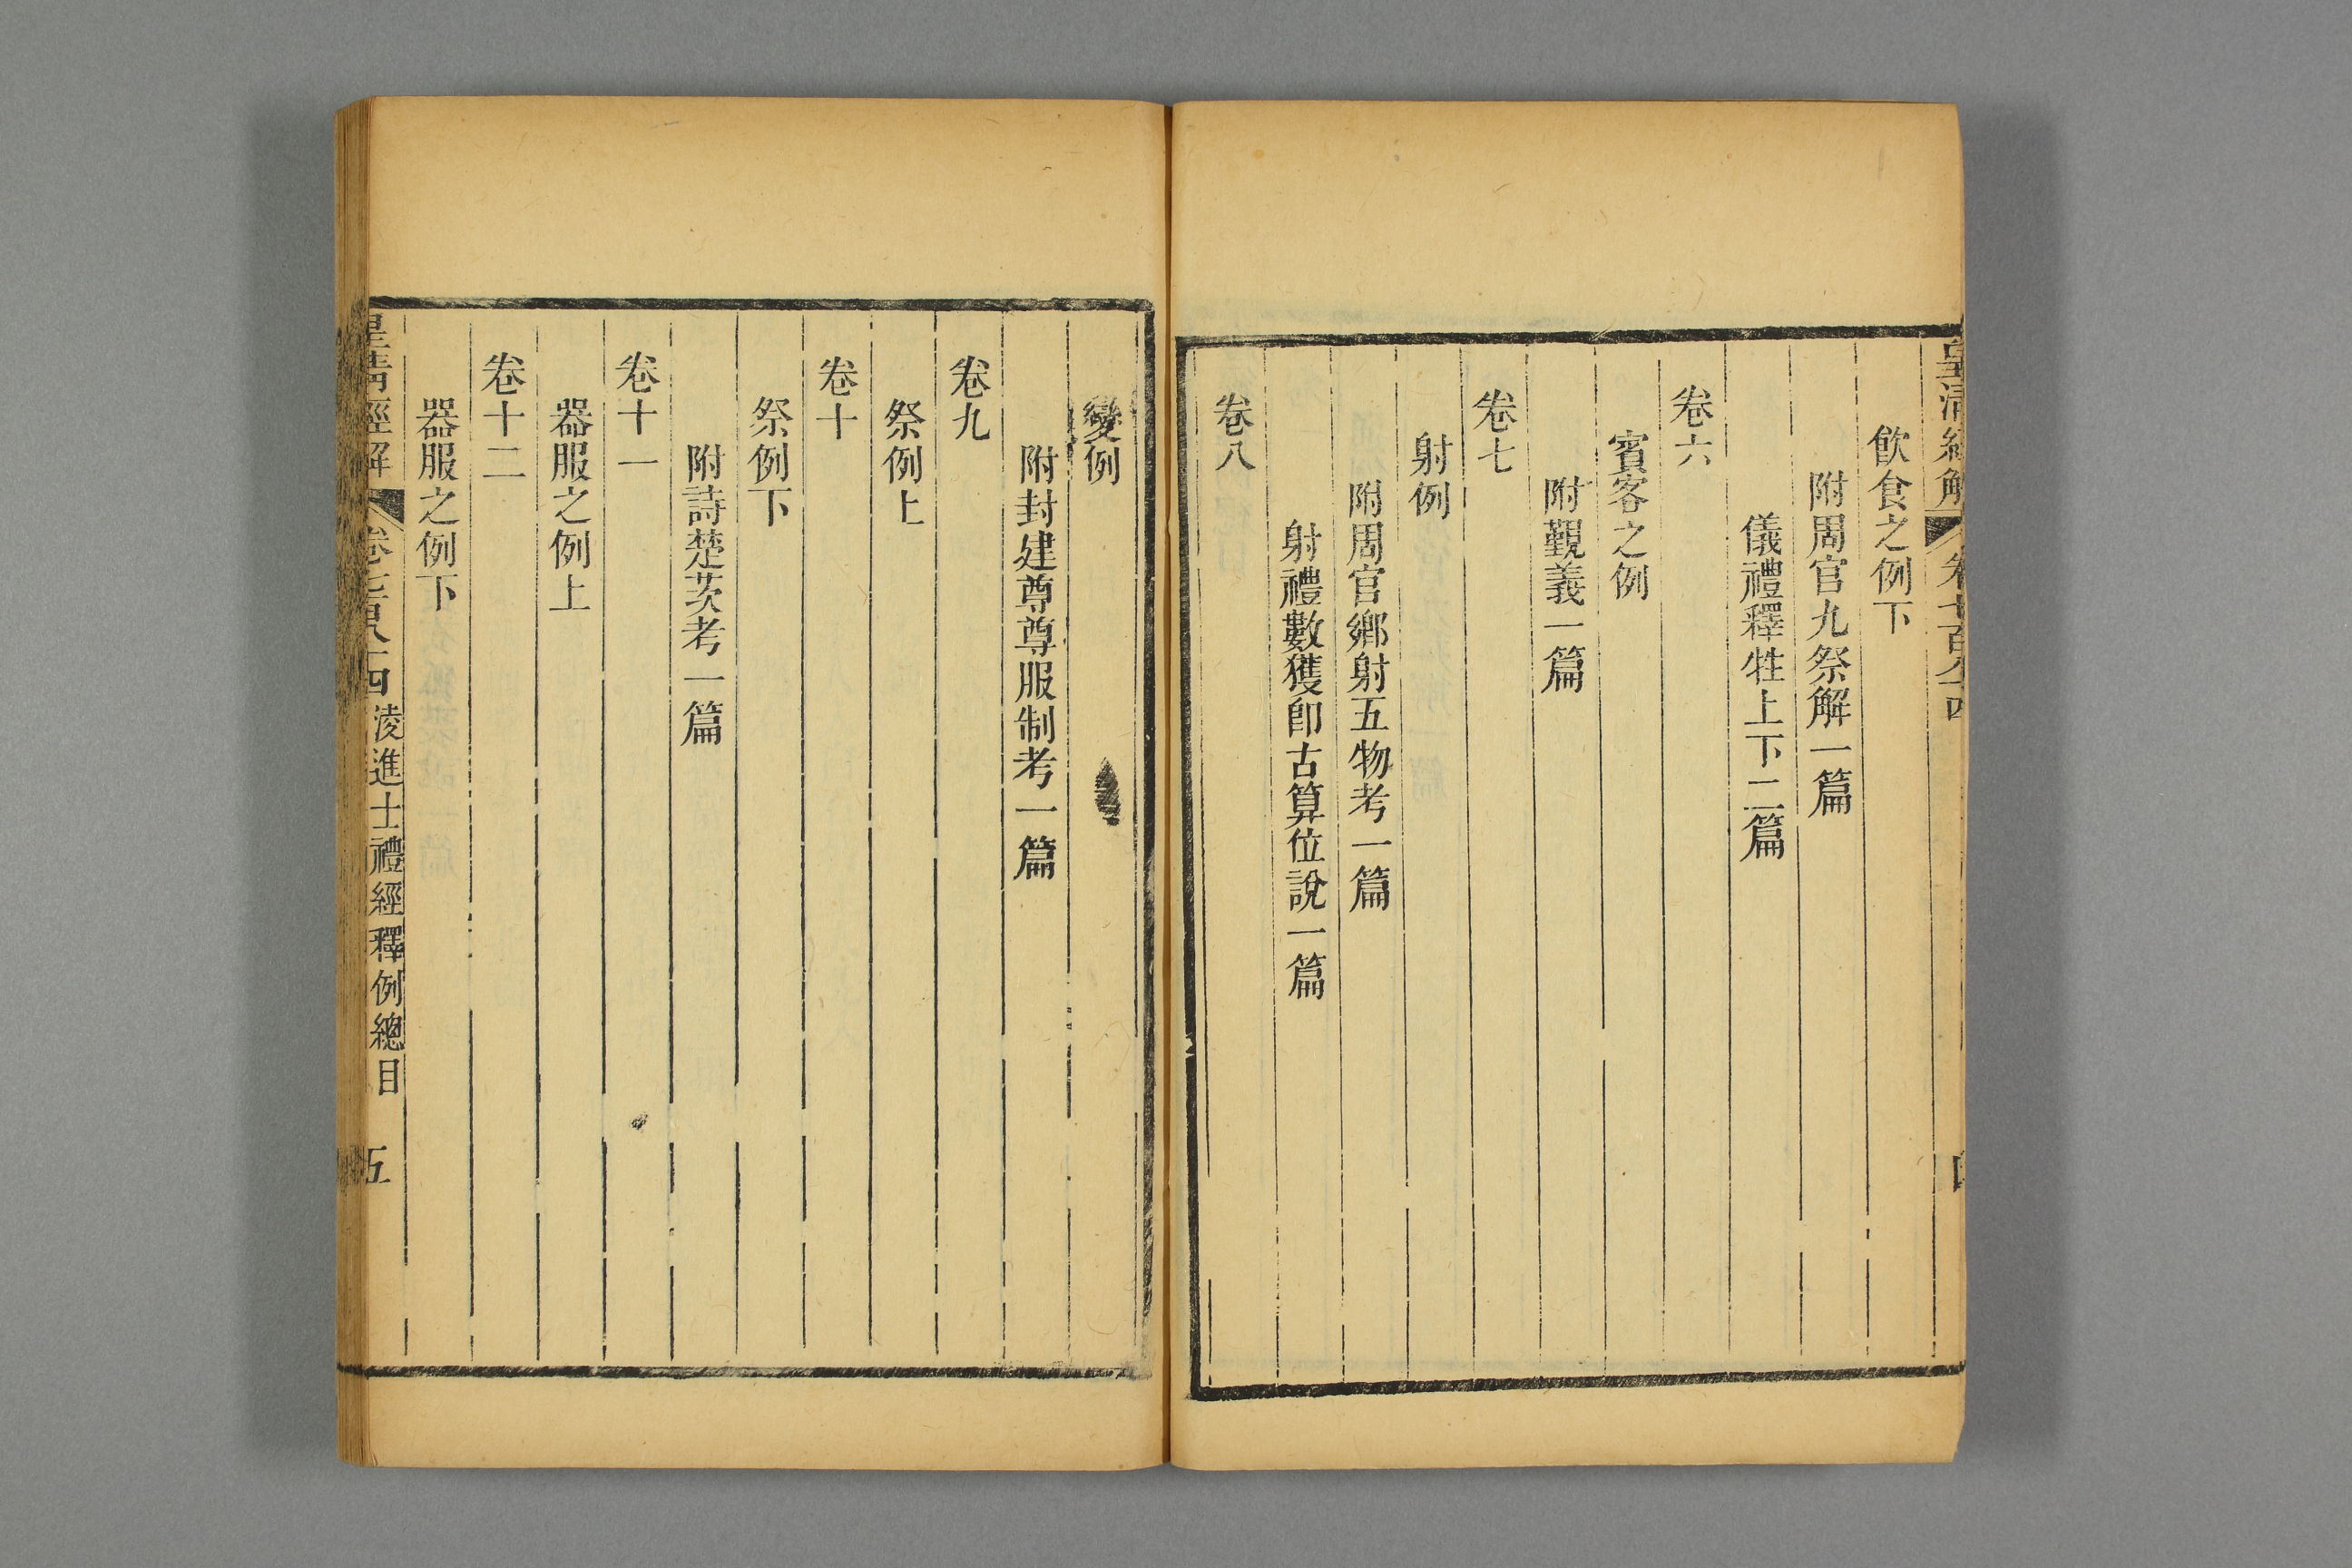 皇清經解 卷七百八十四 四
飲食之例下
附周官九祭解一篇
儀禮釋牲上下二篇
卷六
賓客之例
附覲義一篇
卷七
射例
附周官鄉射五物考一篇
射禮數獲卽古算位說一篇
卷八
變例
附封建尊尊服制考一篇
卷九
祭例上
卷十
祭例下
附詩楚茨考一篇
卷十一
器服之例上
卷十二
器服之例下
皇清經解 卷七百八十四 淩進士禮經釋例總目 五